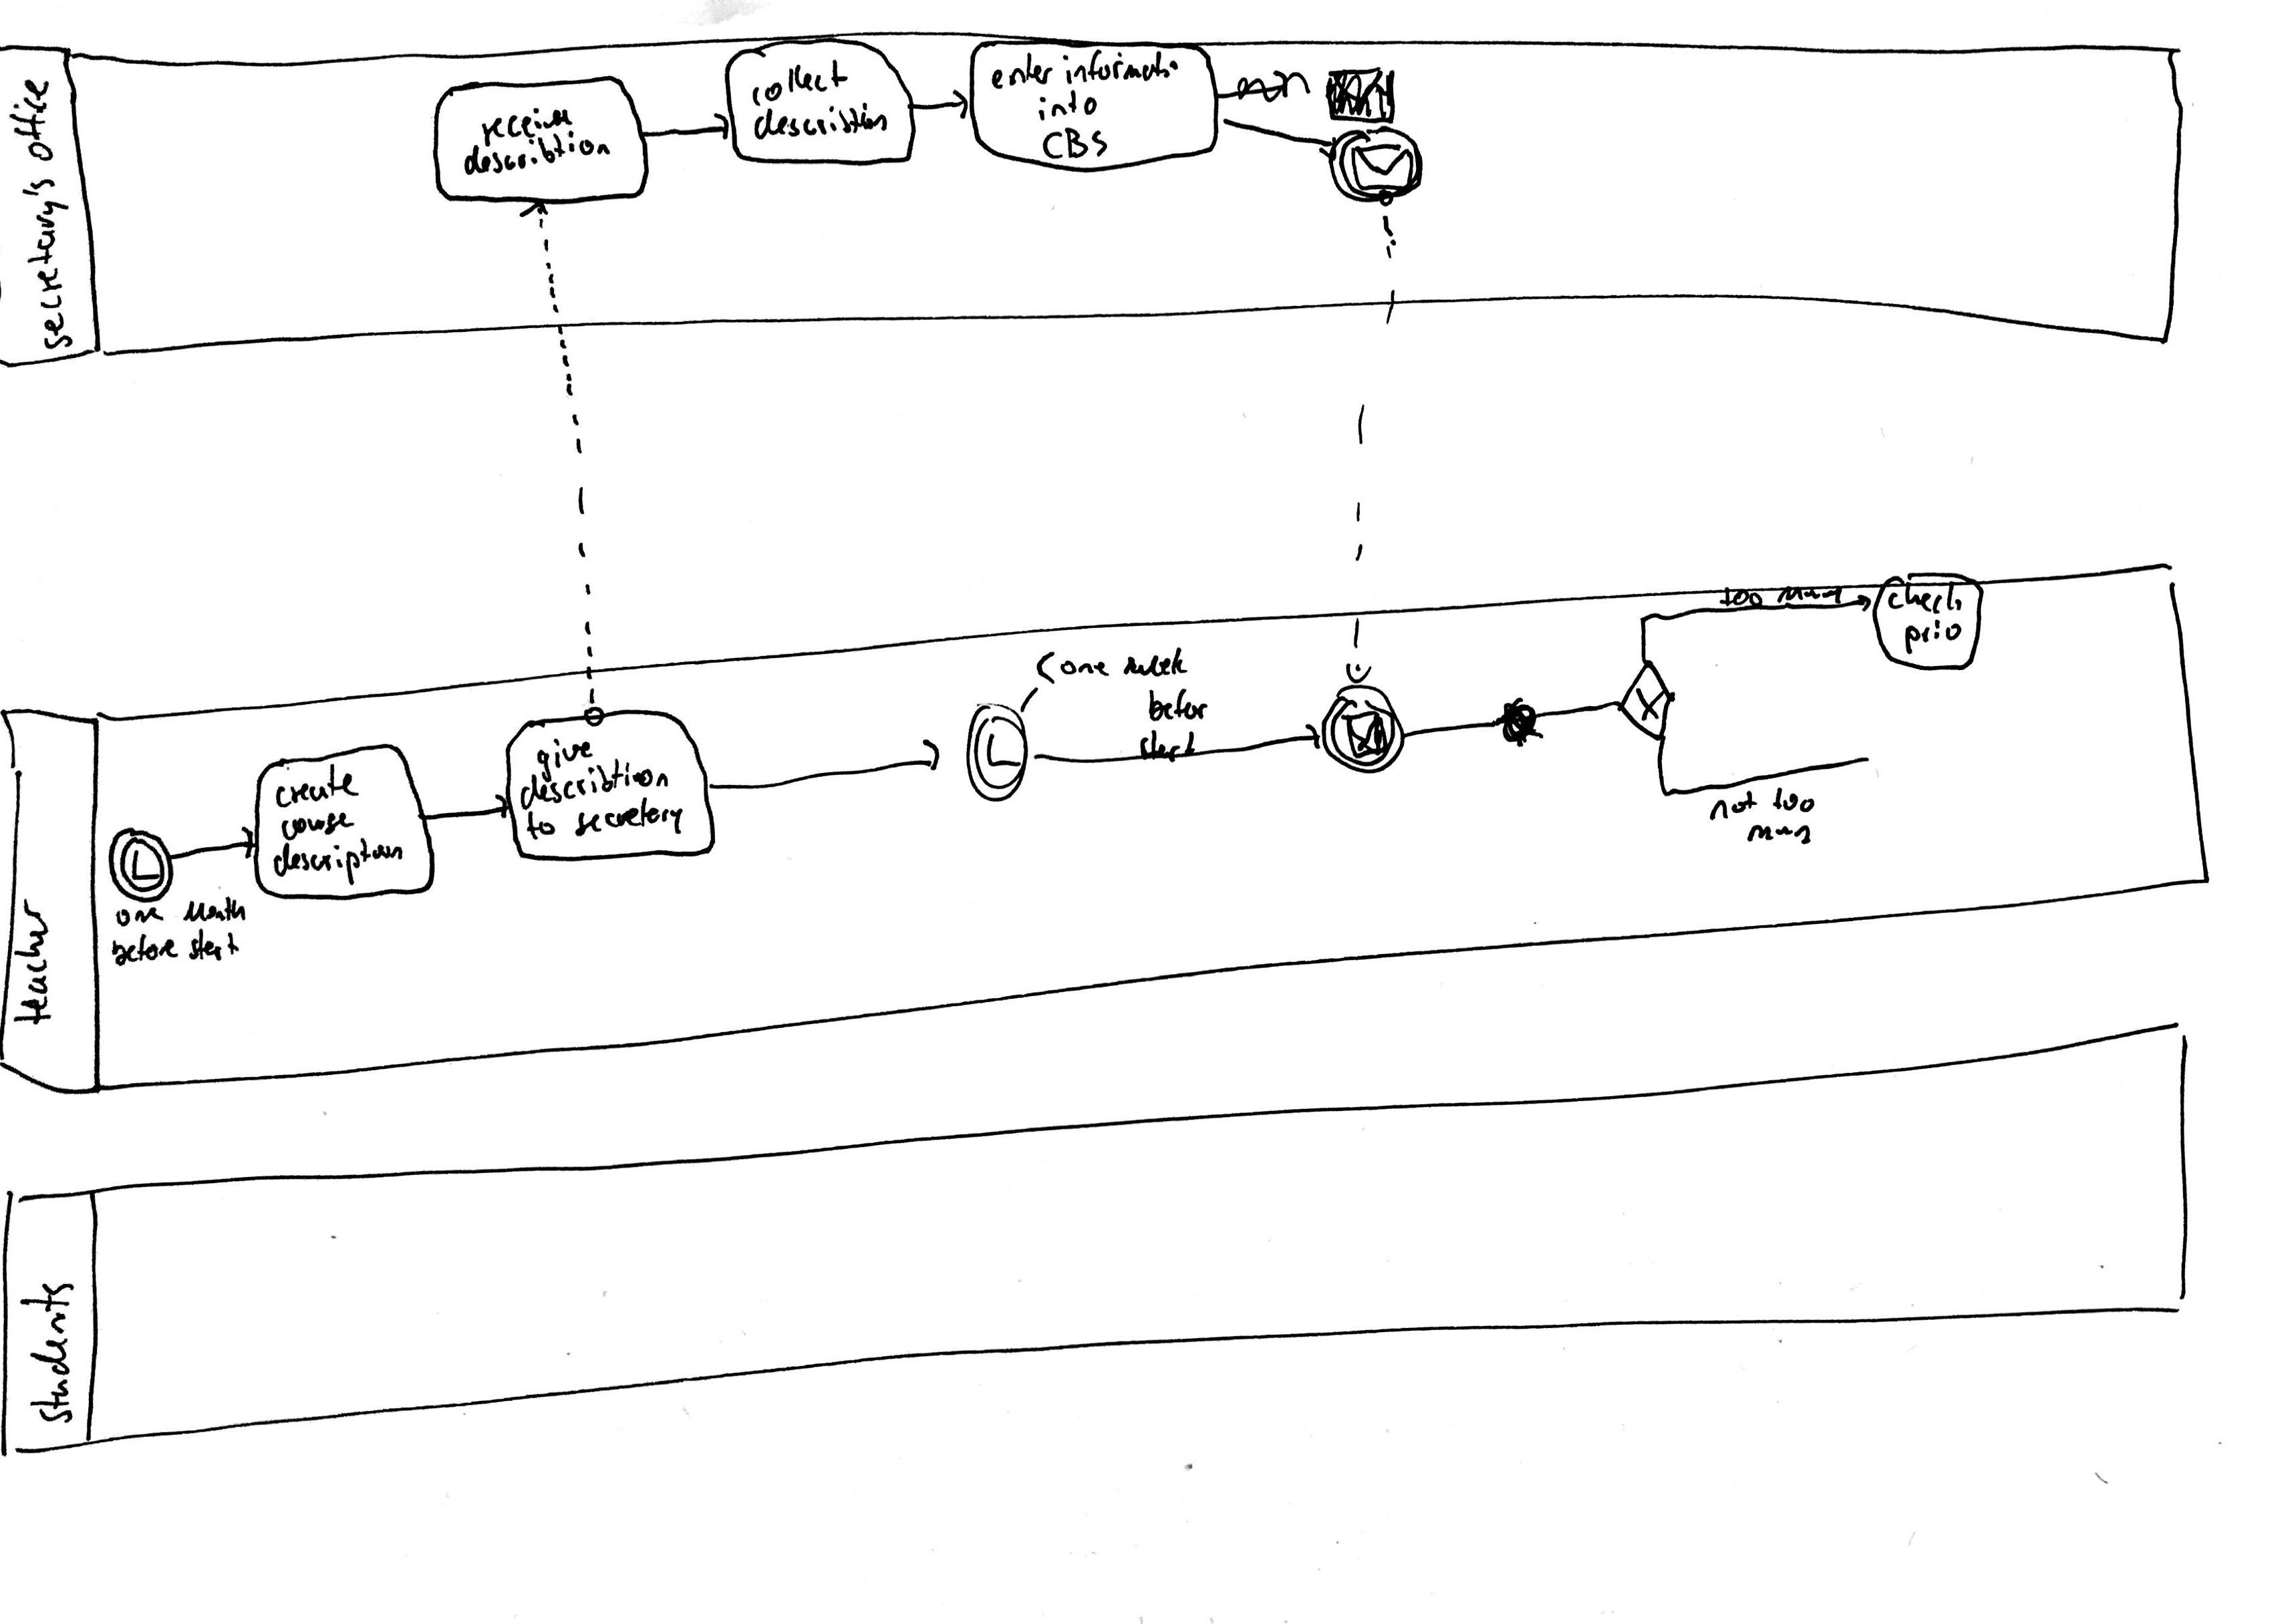 secretary's office
receive
describtion
collect
describtion
enter informatio
into
CBS
teacher
one month
before start
create
course
description
give
describtion
to secretery
one week
befor
start
too many
not too
many
check
prio
students